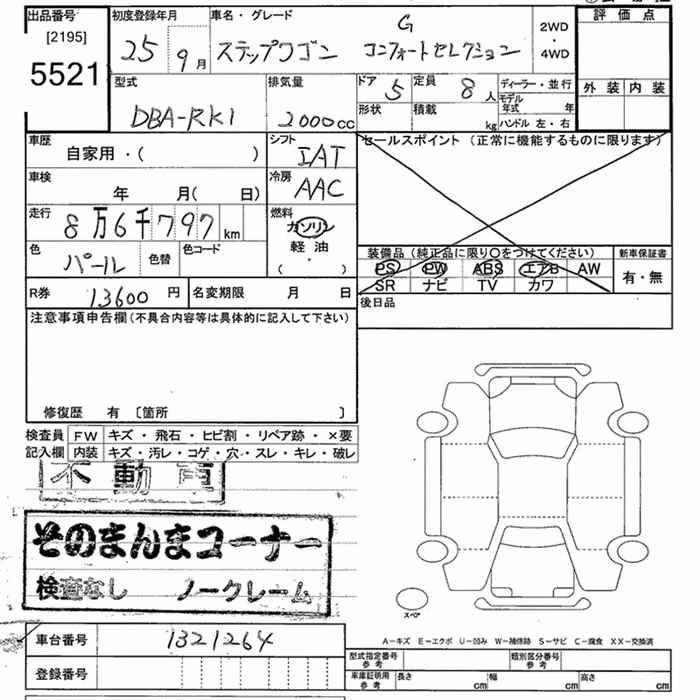 出品番号 初度登録年月 車名・グレード 評価点
[2195] 25年9月 ステップワゴン G コンフォートセレクション 2WD・4WD
5521 外装 内装
型式 排気量 ドア 5 定員 8人 ディーラー・並行
DBA-RK1 2000cc 形状 積載 kg モデル年式 年
ハンドル 左・右
車歴 シフト セールスポイント (正常に機能するものに限ります)
自家用・( ) IAT
車検 冷房
年 月( 日) AAC
走行 燃料
8万6千797km ガソリン
色 色替 色コード 軽油 装備品 (純正品に限り〇をつけてください) 新車保証書
パール ・( ) PS PW ABS エアB AW 有・無
SR ナビ TV カワ
R券 13600円 名変期限 月 日 後日品
注意事項申告欄(不具合内容等は具体的に記入して下さい)
修復歴 有 〔箇所 〕
検査員 FW キズ・飛石・ヒビ割・リペア跡・×要
記入欄 内装 キズ・汚レ・コゲ・穴・スレ・キレ・破レ
不動車
そのまんまコーナー
検査なし ノークレーム
スペア
A-キズ E-エクボ U-凹み W-補修跡 S-サビ C-腐食 XX-交換済
車台番号 1321264 型式指定番号 参考 類別区分番号 参考
登録番号 車庫証明用 参考 長さ cm 幅 cm 高さ cm